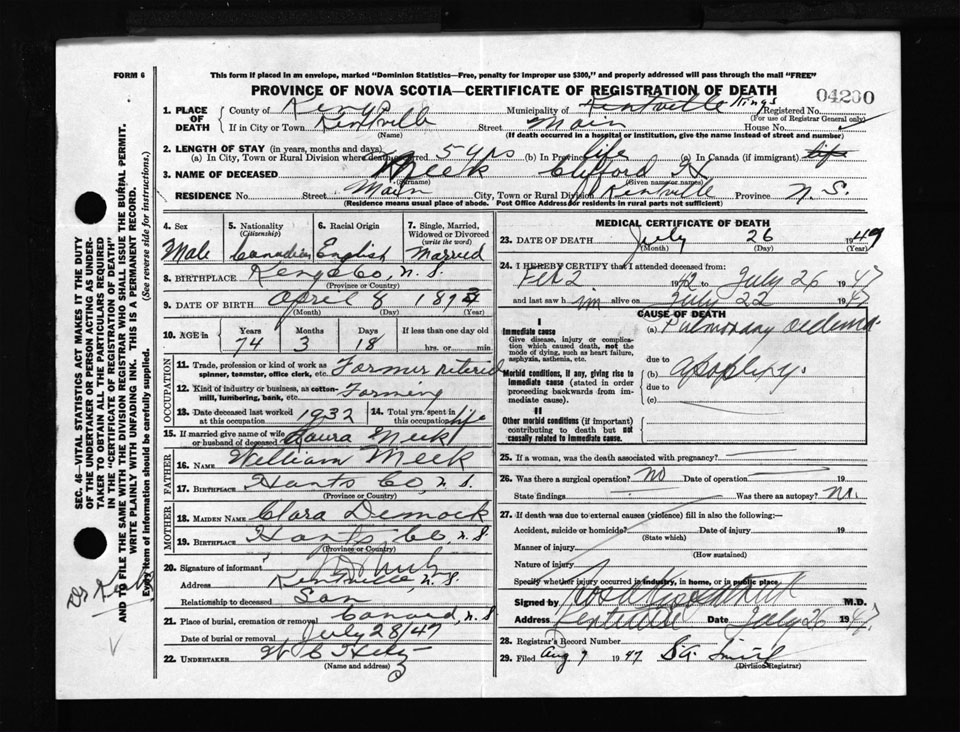 FORM 6
This form if placed in an envelope, marked "Dominion Statistics—Free, penalty for improper use $300," and properly addressed will pass through the mail "FREE"
PROVINCE OF NOVA SCOTIA—CERTIFICATE OF REGISTRATION OF DEATH
1. PLACE OF DEATH
County of Kings Municipality of Kentville Kings Registered No.
(For use of Registrar General only)
If in City or Town Kentville Street Main House No.
(Name) (If death occurred in a hospital or institution, give the name instead of street and number)
2. LENGTH OF STAY (in years, months and days)
(a) In City, Town or Rural Division where death occurred 5 yrs (b) In Province life (c) In Canada (if immigrant) life
3. NAME OF DECEASED Meek Clifford
(Surname) (Given name or names)
RESIDENCE No. Street Main City, Town or Rural Division Kentville Province N.S.
(Residence means usual place of abode. Post Office Address for residents in rural parts not sufficient)
4. Sex Male
5. Nationality (Citizenship) Canadian
6. Racial Origin English
7. Single, Married, Widowed or Divorced (write the word) Married
8. BIRTHPLACE Kings Co, N.S.
(Province or Country)
9. DATE OF BIRTH April 8 187
(Month) (Day) (Year)
10. AGE in Years Months Days If less than one day old
74 3 18 hrs. or min.
OCCUPATION
11. Trade, profession or kind of work as spinner, teamster, office clerk, etc. Farmer retired
12. Kind of industry or business, as cotton-mill, lumbering, bank, etc. Farming
13. Date deceased last worked at this occupation 1932 14. Total yrs. spent in this occupation life
15. If married give name of wife or husband of deceased Laura Meek
FATHER
16. NAME William Meek
17. BIRTHPLACE Hants Co, N.S.
(Province or Country)
MOTHER
18. MAIDEN NAME Clara Demock
19. BIRTHPLACE Hants Co, N.S.
(Province or Country)
20. Signature of informant
Address Kentville, N.S.
Relationship to deceased Son
21. Place of burial, cremation or removal Canard, N.S.
Date of burial or removal July 28/47
22. UNDERTAKER W C
(Name and address)
04230
MEDICAL CERTIFICATE OF DEATH
23. DATE OF DEATH July 26 194
(Month) (Day) (Year)
24. I HEREBY CERTIFY that I attended deceased from:
Feb 2 1942 to July 26 1947
and last saw him alive on July 22 1947
CAUSE OF DEATH
I
Immediate cause (a) Pulmonary oedema
Give disease, injury or complication which caused death, not the mode of dying, such as heart failure, asphyxia, asthenia, etc.
due to
Morbid conditions, if any, giving rise to immediate cause (stated in order proceeding backwards from immediate cause).
(b) apoplexy.
due to
(c)
II
Other morbid conditions (if important) contributing to death but not causally related to immediate cause.
25. If a woman, was the death associated with pregnancy?
26. Was there a surgical operation? No Date of operation 19
State findings Was there an autopsy? No.
27. If death was due to external causes (violence) fill in also the following:—
Accident, suicide or homicide? Date of injury 19
(State which)
Manner of injury
(How sustained)
Nature of injury
Specify whether injury occurred in industry, in home, or in public place
Signed by M.D.
Address Kentville Date July 26 1947
28. Registrar's Record Number
29. Filed Aug 9 1947 Smith
(Division Registrar)
SEC. 46—VITAL STATISTICS ACT MAKES IT THE DUTY
OF THE UNDERTAKER OR PERSON ACTING AS UNDER-
TAKER TO OBTAIN ALL THE PARTICULARS REQUIRED
IN THE "CERTIFICATE OF REGISTRATION OF DEATH"
AND TO FILE THE SAME WITH THE DIVISION REGISTRAR WHO SHALL ISSUE THE BURIAL PERMIT.
WRITE PLAINLY WITH UNFADING INK. THIS IS A PERMANENT RECORD.
Every item of information should be carefully supplied. (See reverse side for instructions.)